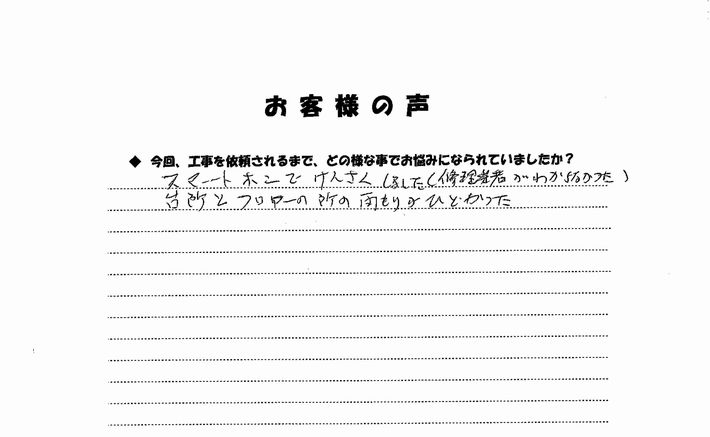 お客様の声
◆ 今回、工事を依頼されるまで、どの様な事でお悩みになられていましたか？
スマートホンで けんさく しました(修理業者がわからなかった)
台所とフロワーの所の雨もりがひどかった